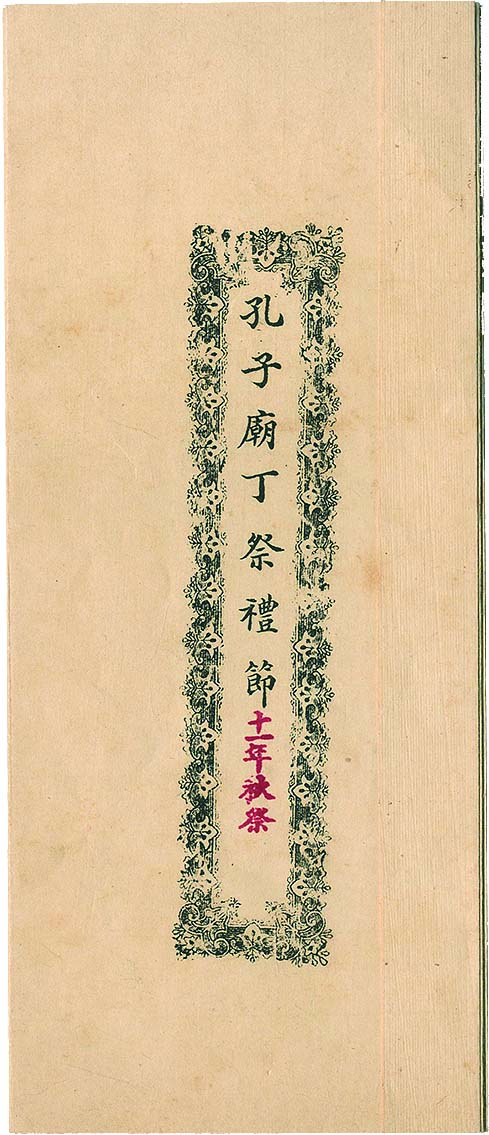 孔子廟丁祭禮節十一年秋祭